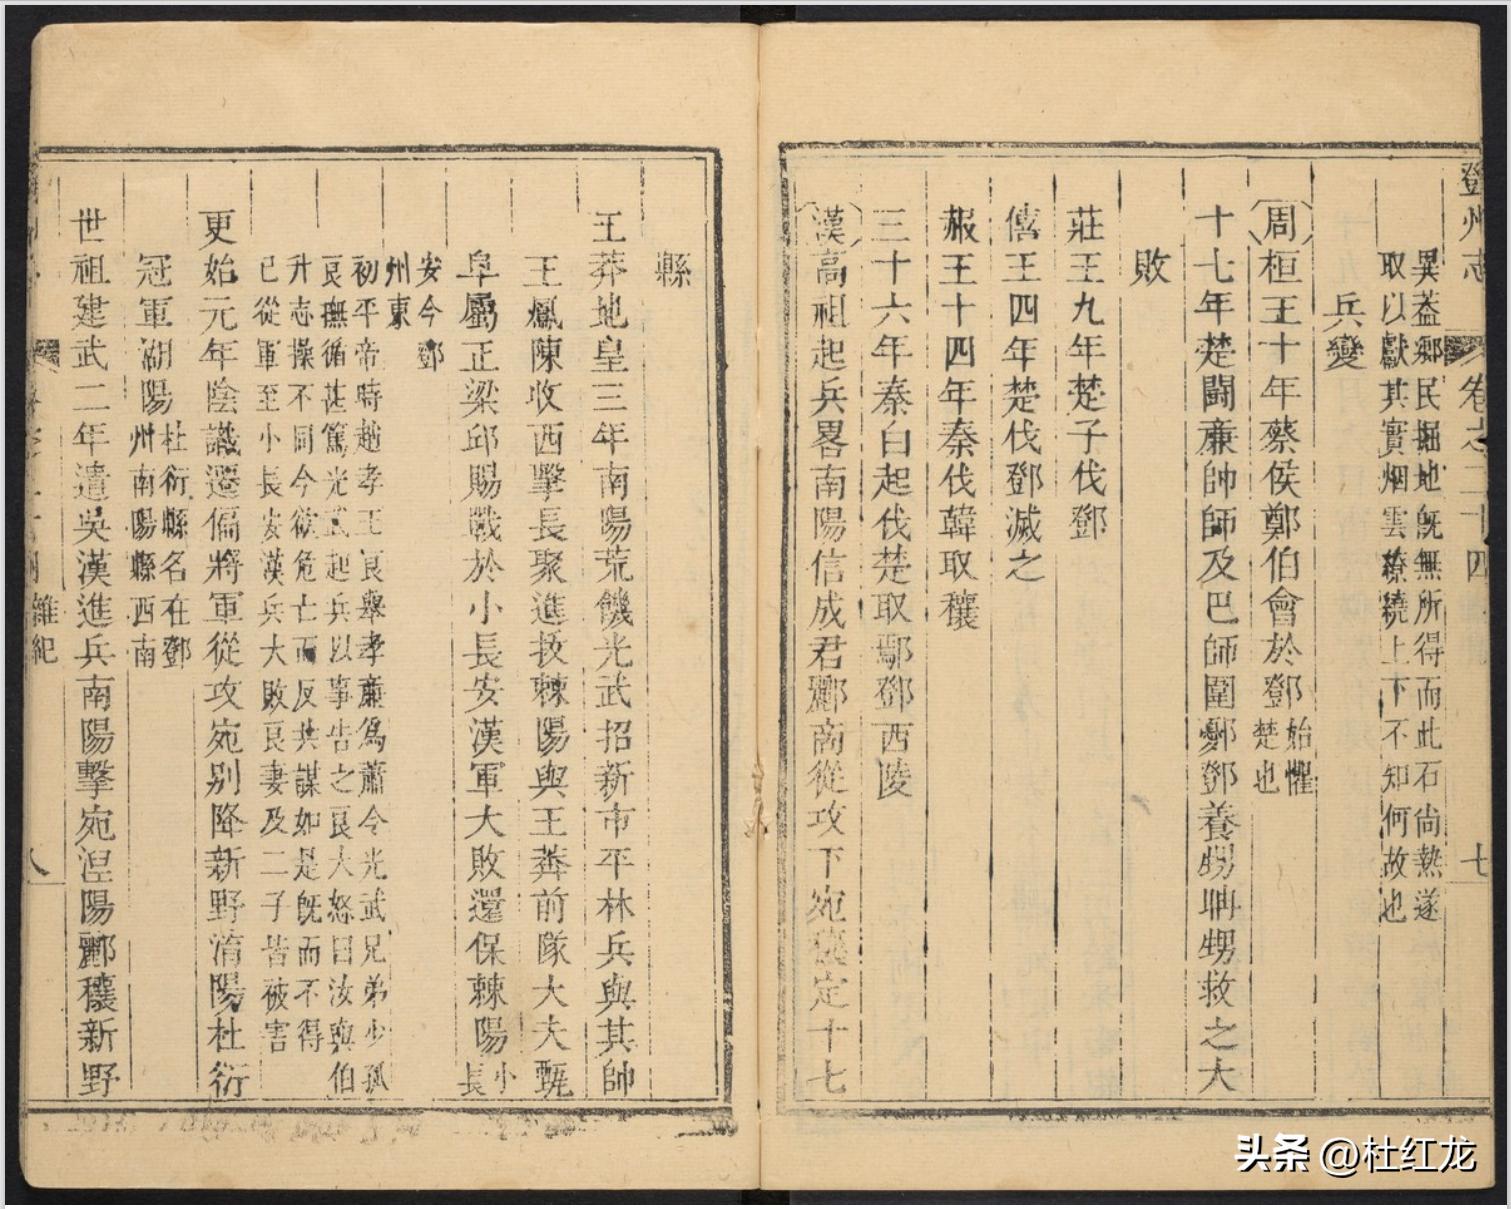 鄧州志
卷之二十四
七
異蓋鄉民掘地旣無所得而此石尙熱遂
取以獻其實烟雲繚繞上下不知何故也
兵變
周桓王十年蔡侯鄭伯會於鄧始懼
楚也
十七年楚鬭亷帥師及巴師圍鄾鄧養甥聃甥救之大
敗
莊王九年楚子伐鄧
僖王四年楚伐鄧滅之
赧王十四年秦伐韓取穰
三十六年秦白起伐楚取鄢鄧西陵
漢高祖起兵畧南陽信成君酈商從攻下宛穰定十七
縣
王莽地皇三年南陽荒饑光武招新市平林兵與其帥
王鳳陳收西擊長聚進拔棘陽與王莽前隊大夫甄
阜屬正梁邱賜戰於小長安漢軍大敗還保棘陽小
長
安今鄧
州東
初平帝時趙孝王良舉孝亷爲蕭令光武兄弟少孤
良撫循甚篤光武起兵以事告之良大怒曰汝與伯
升志操不同今欲危亡而反共謀如是旣而不得
已從軍至小長安漢兵大敗良妻及二子皆被害
更始元年陰識遷偏將軍從攻宛别降新野淯陽杜衍
冠軍湖陽杜衍縣名在鄧
州南陽縣西南
世祖建武二年遣吳漢進兵南陽擊宛涅陽酈穰新野
雜紀
八
头条 @杜红龙